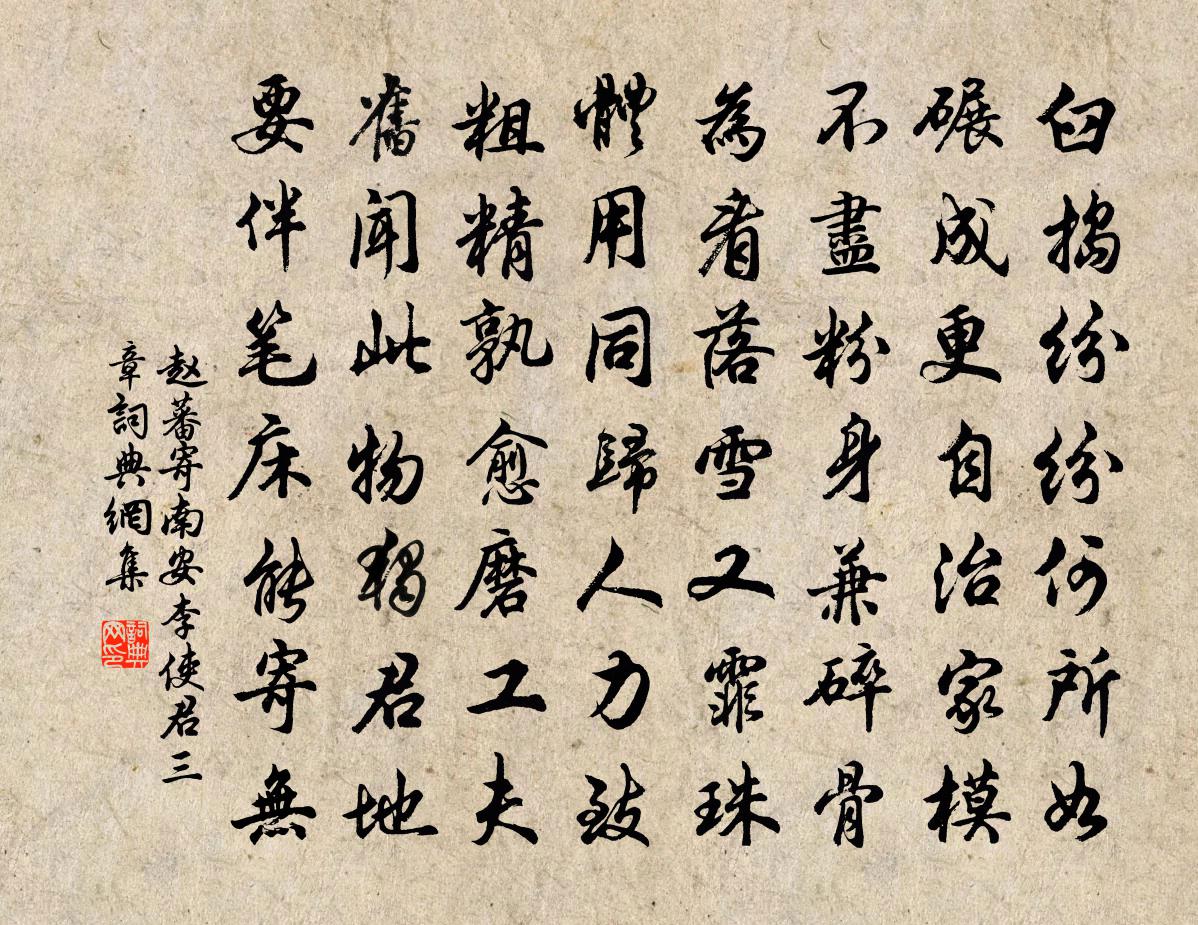 臼搗紛紛何所如
碾成更自治家模
不盡粉身兼碎骨
為看落雪又霏珠
體用同歸人力致
粗精孰愈磨工夫
舊聞此物獨君地
要伴笔床能寄無
赵蕃寄南安李使君三
章詞典網集
詞典
网印